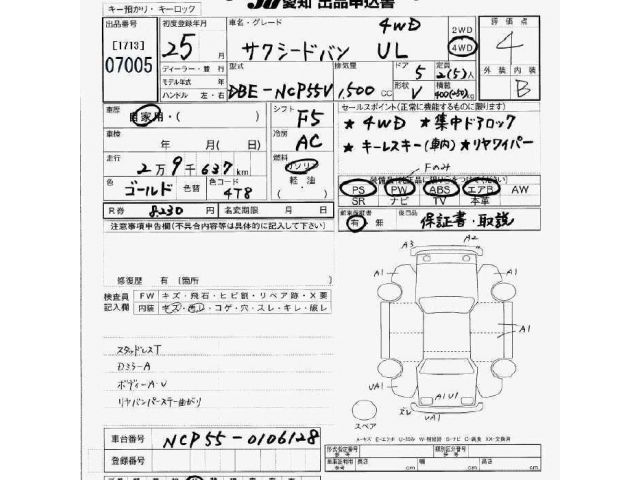 キー預かり・キーロック
愛知 出品申込書
出品番号 初度登録年月 車名・グレード 4WD 2WD 評価点
[1713] 25年 月 サクシードバン UL 4WD 4
07005 ディーラー・並行 型式 排気量 ドア 5 定員 2(5)人 外装 内装
モデル年式 年 DBE-NCP55V 1,500 CC 形状 V 積載 400(250)kg B
ハンドル 左・右
車歴 自家用・( ) シフト F5 セールスポイント(正常に機能するものに限ります)
車検 年 月( 日) 冷房 AC ★4WD ★集中ドアロック
走行 2万9千637km 燃料 ガソリン ★キーレスキー(車内) ★リヤワイパー
色 ゴールド 色替 カラーコード 4T8 軽油 ( ) Fのみ
PS PW ABS エアB AW
R券 8,230円 名変期限 月 日 SR ナビ TV 本革
注意事項申告欄(不具合内容等は具体的に記入して下さい) 新車保証書 有 無 後日品 保証書・取説
修復歴 有(箇所 )
検査員記入欄 FW キズ・飛石・ヒビ割・リペア跡・X要
内装 キズ・汚レ・コゲ・穴・スレ・キレ・破レ
A3 A2
A1 A1
A1
スタッドレスT
Dミラ-A
ボディーA・U
リヤバンパーステー曲がり
UA1 A1U1 A1
ズレ UA1
スペア
車台番号 NCP55-0106128
登録番号
形式指定番号 類別区分番号
車庫証明用参考 長さ cm 幅 cm 高さ cm